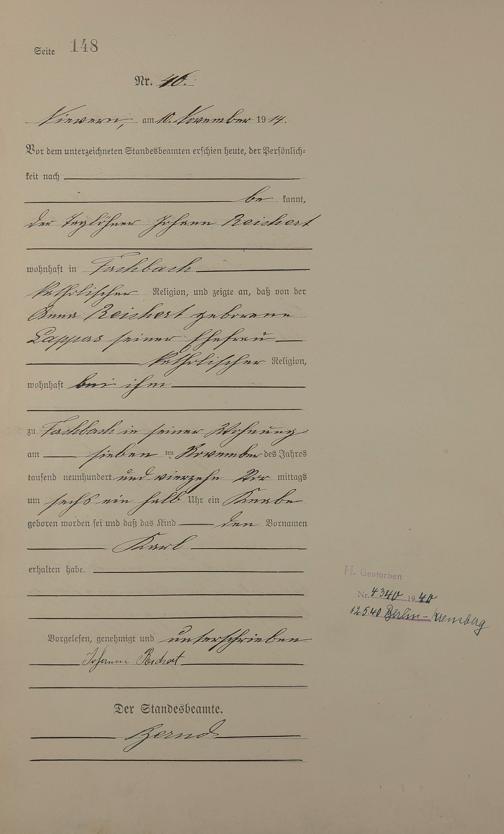 Seite 148
Nr. 46.
Nievern, am 10. November 1914.
Vor dem unterzeichneten Standesbeamten erschien heute, der Persönlich-
keit nach
be kannt,
der Taglöhner Johann Reichert
wohnhaft in Fachbach
katholischer Religion, und zeigte an, daß von der
Anna Reichert geborene
Lappas seiner Ehefrau
katholischer Religion,
wohnhaft bei ihm
zu Fachbach in seiner Wohnung
am sieben ten November des Jahres
tausend neunhundert und vierzehn Vor mittags
um sechs ein halb Uhr ein Knabe
geboren worden sei und daß das Kind den Vornamen
Karl
erhalten habe.
Vorgelesen, genehmigt und unterschrieben
Johann Reichert
Der Standesbeamte.
Gestorben
Nr. 4340 1940
Berlin-